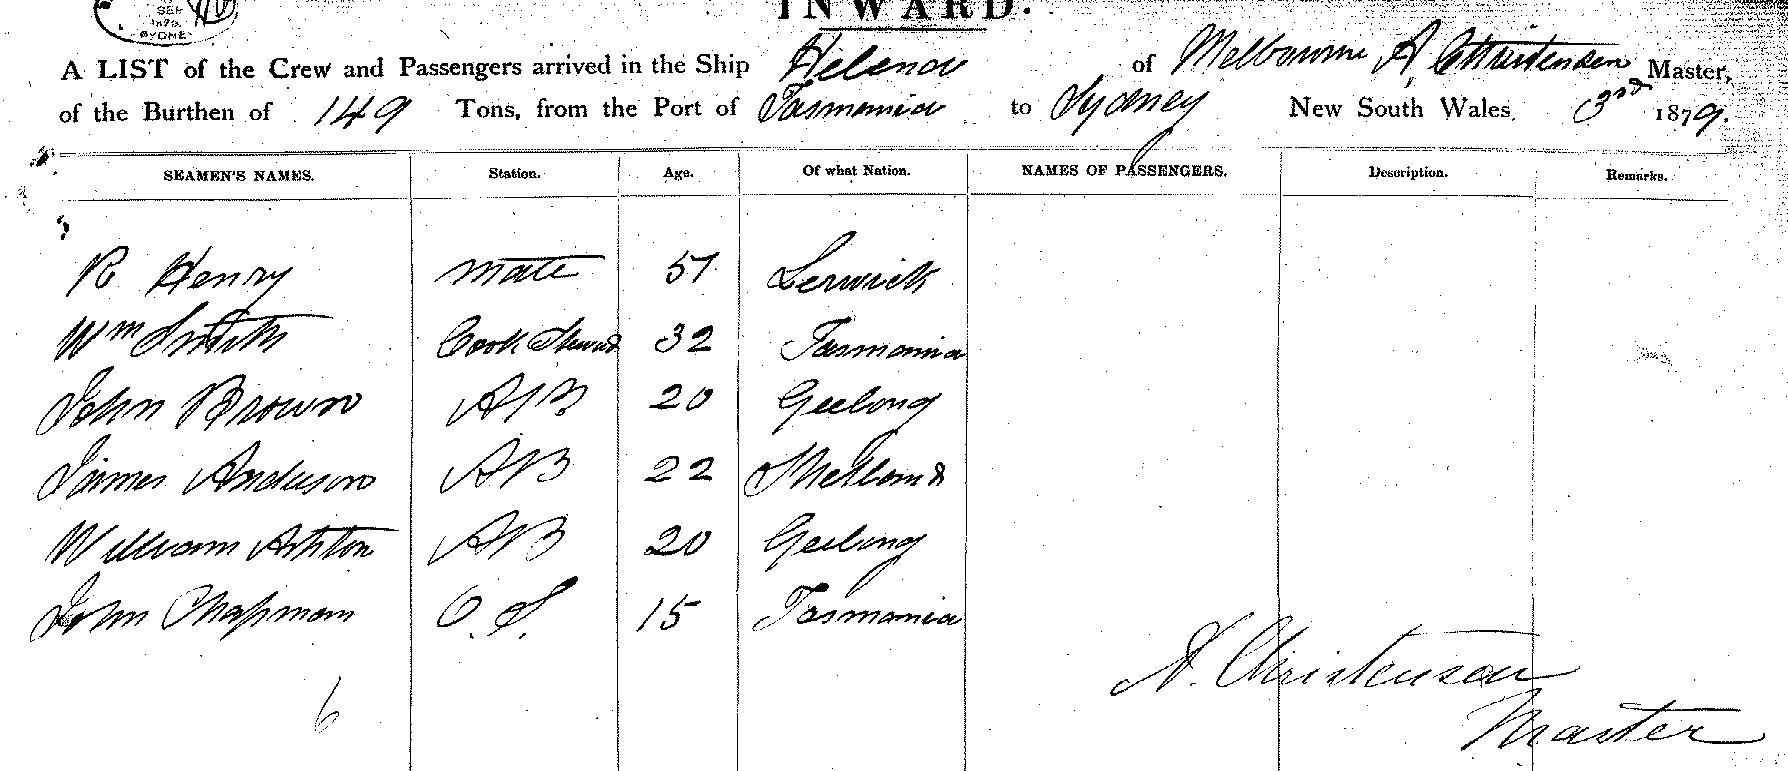 SEP
1879
SYDNEY
INWARD.
A LIST of the Crew and Passengers arrived in the Ship Helena of Melbourne A Christensen Master,
of the Burthen of 149 Tons, from the Port of Tasmania to Sydney New South Wales. 3rd 1879.
SEAMEN'S NAMES. Station. Age. Of what Nation. NAMES OF PASSENGERS. Description. Remarks.
R Henry mate 51 Lerwick
Wm Smith Cook Steward 32 Tasmania
John Brown AB 20 Geelong
James Anderson AB 22 Shetland
William Ashton AB 20 Geelong
John Chapman O.S. 15 Tasmania
A. Christensen
Master
6